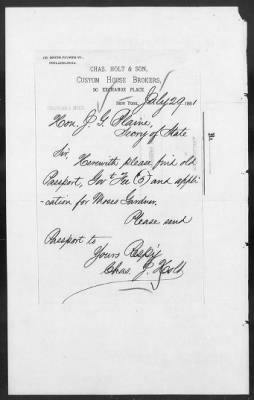 CHAS. HOLT & SON,
CUSTOM HOUSE BROKERS,
90 EXCHANGE PLACE.
NEW YORK, July 29 1881
Hon. J. G. Blaine,
Secry of State
Sir,
Herewith please find old
Passport, Govt Fee (5) and appli
cation for Moses Gardner.
Please send
Passport to
Yours Respy
Chas. J. Holt
No.